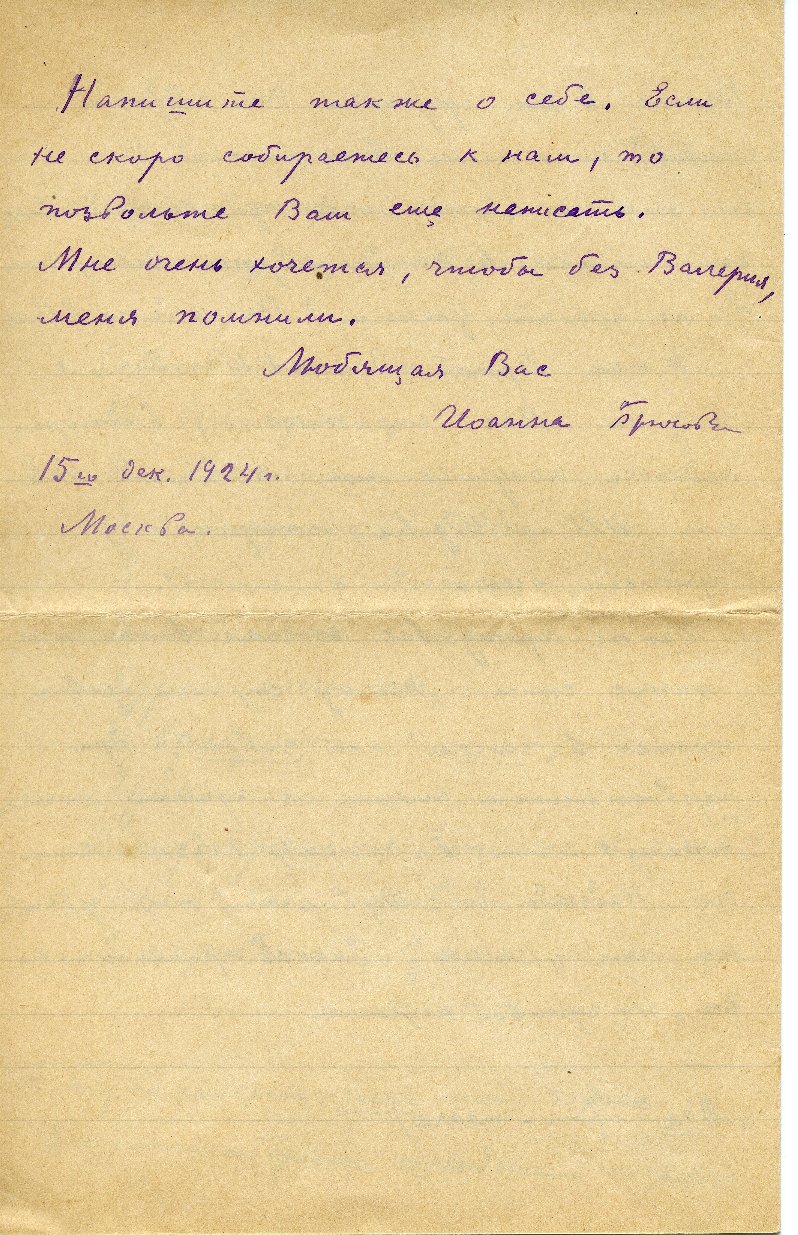 Напишите также о себе. Если
не скоро собираетесь к нам, то
позвольте Вам еще написать.
Мне очень хочется, чтобы без Валерия,
меня помнили.
Любящая Вас
Иоанна Брюсова
15го дек. 1924 г.
Москва.